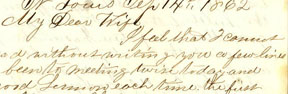 St Louis Sep 14th, 1862
My Dear Wife
I feel that I cannot
ad without writing you a few lines
been to meeting twice today and
ood Sermon each time the first